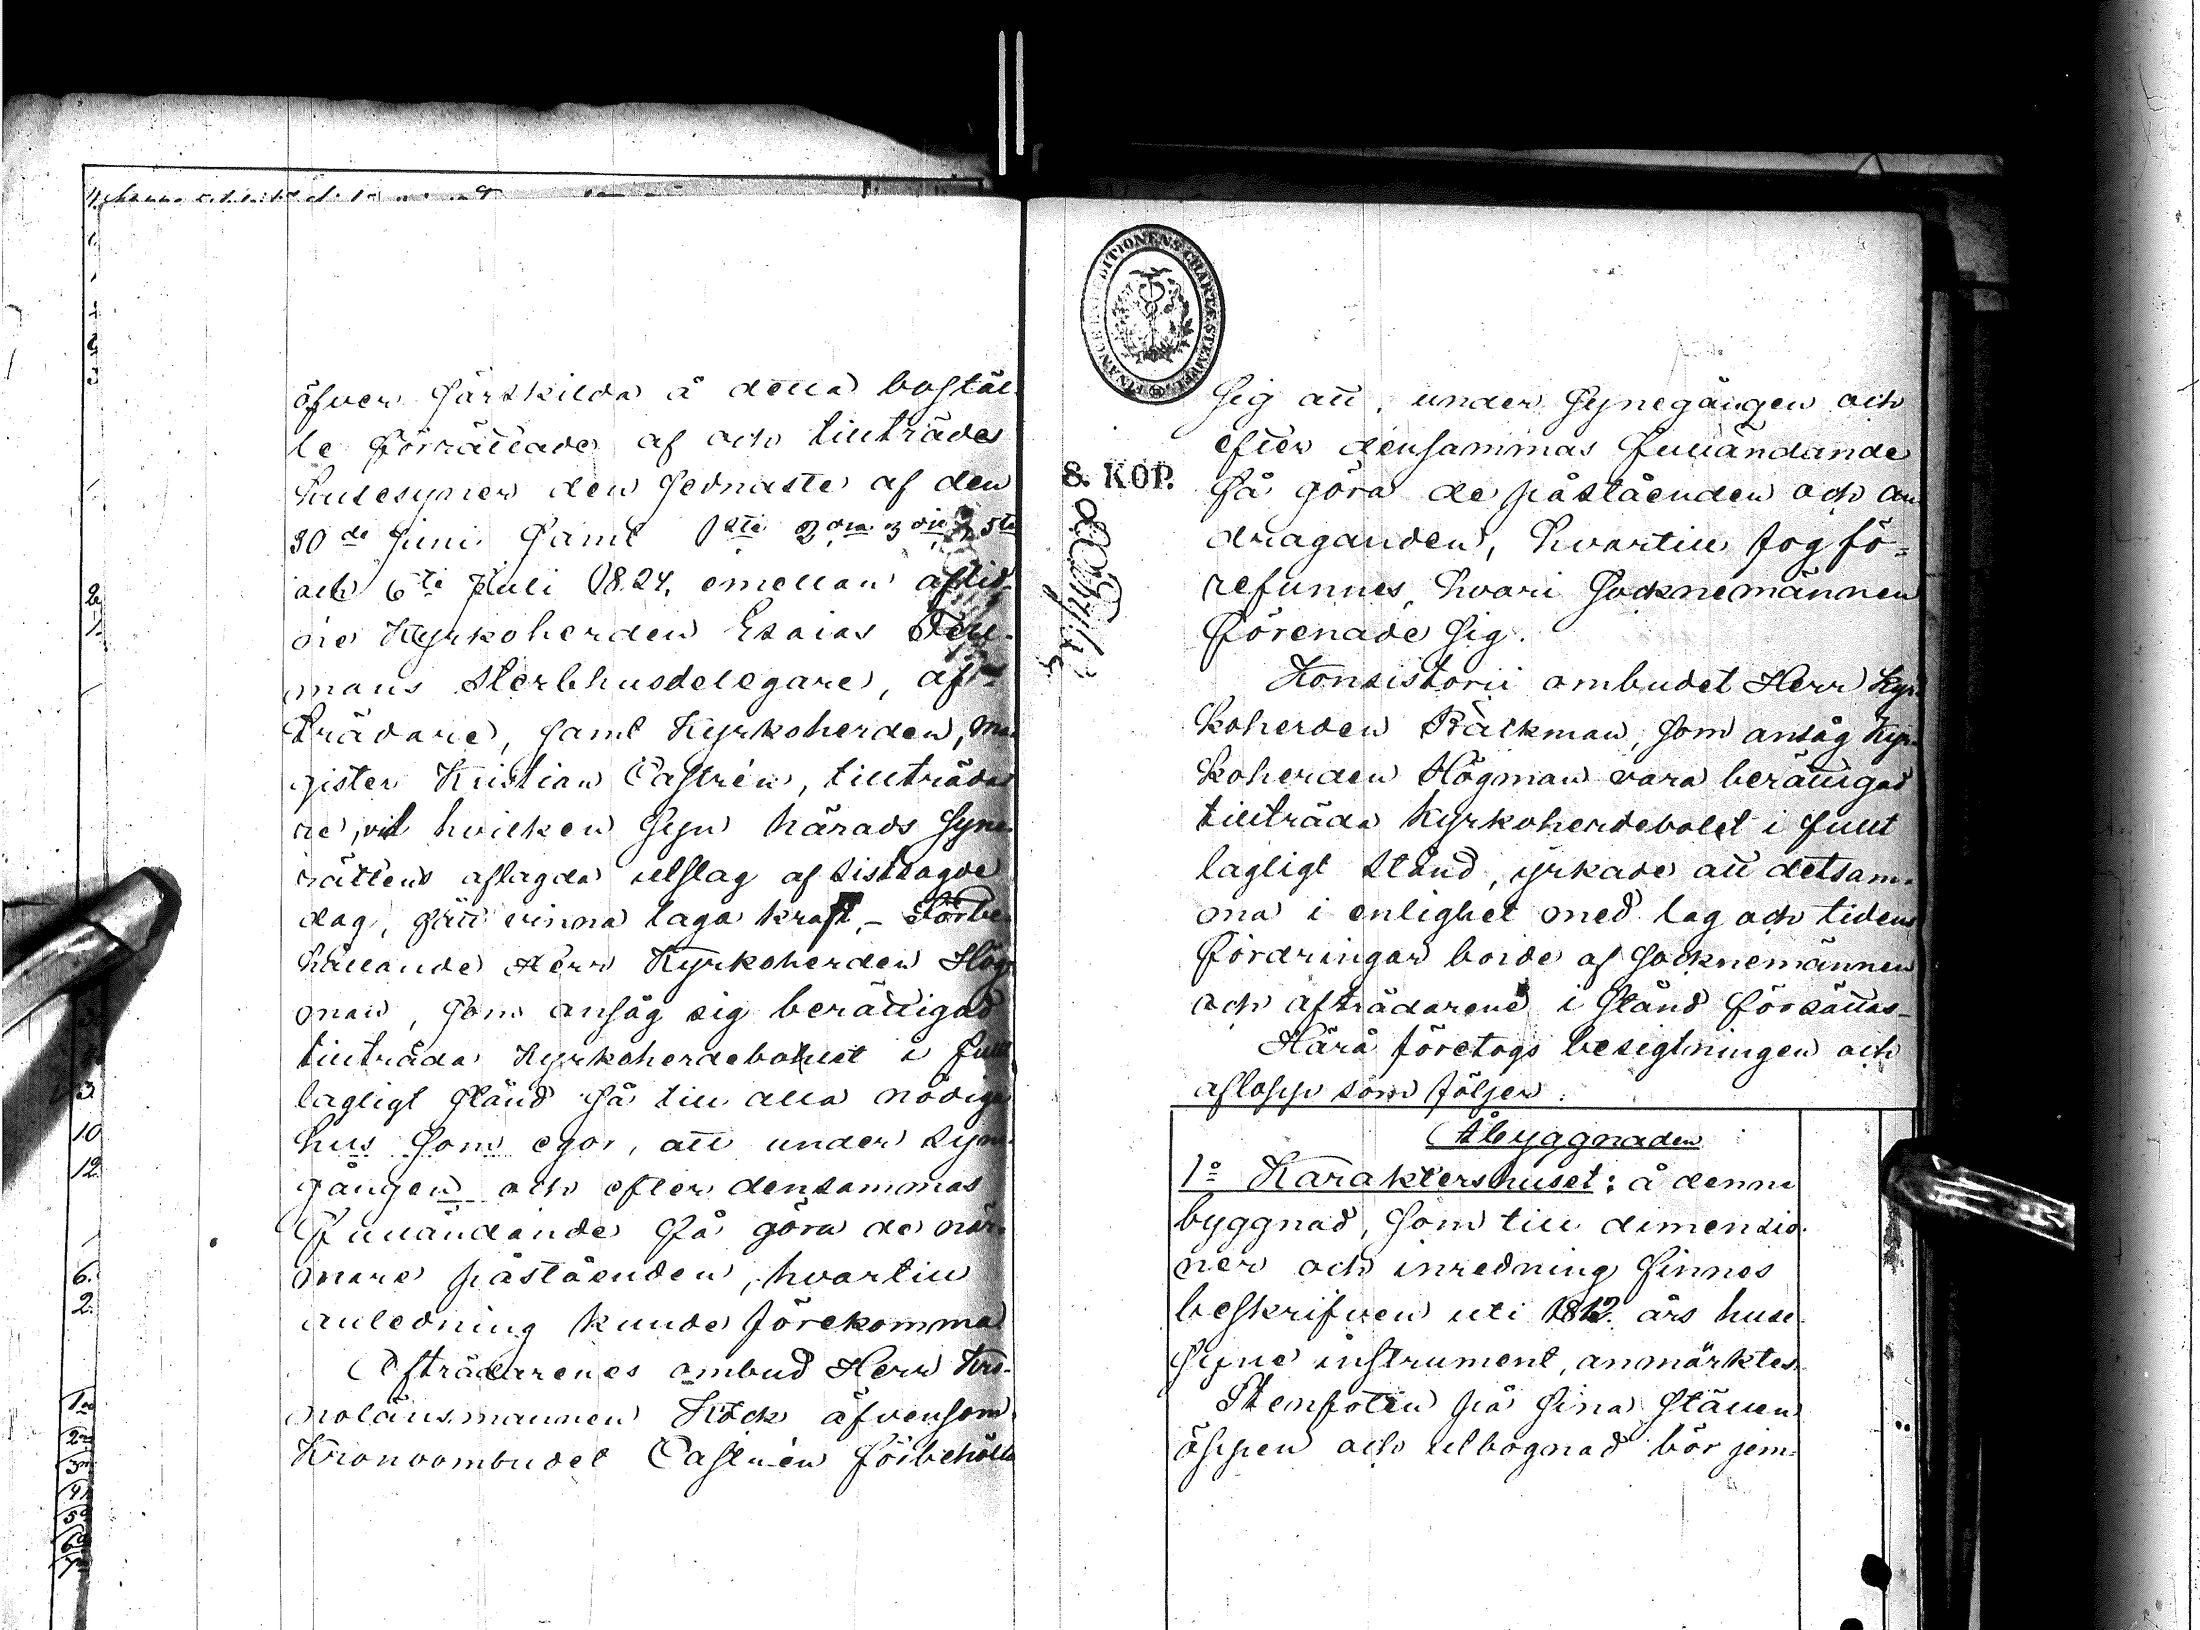 öfver särskilda å detta bostäl-
le förrättade af och tillträdes
husesyner den sednaste af den
30de Juni samt 1sta 2dra 3die 5te
och 6te Juli 1824, emellan aflid-
ne Kyrkoherden Esaias Fell-
mans Sterbhusdelegare, aft-
trädare, samt Kyrkoherden, Ma-
gister Kristian Castrén, tillträda-
re, vid hvilken syn härads syne-
rättens aflagda utslag af sistsagde
dag, fått vinna laga kraft, – Förbe-
hållande Herr Kyrkoherden Hög-
man, som ansåg sig berättigad
tillträda Kyrkoherdebohlet i fullt
lagligt stånd så till alla nödiga
hus som egor, att under syne-
gången och efter densammas
fulländande få göra de när-
mare påståenden, hvartill
anledning kunde förekomma
Afträdarenes ombud Herr Kro-
nolänsmannen Höck äfvensom
Kronoombudet Castrén förbehöllo
FINANCE EXPEDITIONENS CHARTÆ STEMPEL
8. KOP.
sig att, under synegången och
efter densammas fulländande
få göra de påståenden och an-
draganden, hvartill fog fö-
refunnes, hvari socknemännen
förenade sig.
Konsistorii ombudet Herr Kyr-
koherden Räckman, som ansåg Kyr-
koherden Högman vara berättigad
tillträda kyrkoherdebolet i fullt
lagligt stånd, yrkade att detsam-
ma i enlighet med lag och tidens
fordringar borde af socknemännen
och afträdarene i stånd försättas–
Härå företogs besigtningen och
aflopp som följer:
Åbyggnaden
1o Karaktershuset: å denna
byggnad, som till dimensio-
ner och inredning finnes
beskrifven uti 1812 års huse
syne instrument, anmärktes
Stenfoten på sina ställen
öppen och utbognad bör jem-